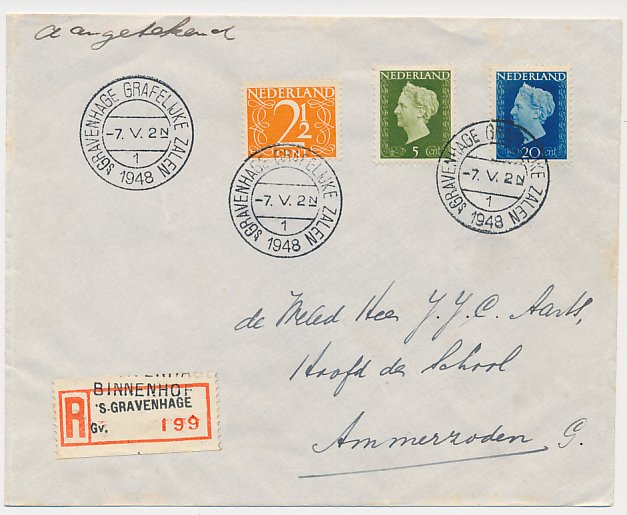 Aangetekend
'SGRAVENHAGE GRAFELIJKE ZALEN
-7. V. 2N
1
1948
NEDERLAND
2½
CENT
'SGRAVENHAGE GRAFELIJKE ZALEN
-7. V. 2N
1
1948
NEDERLAND
5 Cnt
NEDERLAND
20 Cnt
'SGRAVENHAGE GRAFELIJKE ZALEN
-7. V. 2N
1
1948
de Weled Heer J. J. C. Aarts,
Hoofd der School
Ammerzoden G.
BINNENHOF
'S-GRAVENHAGE
R
Gv. 199